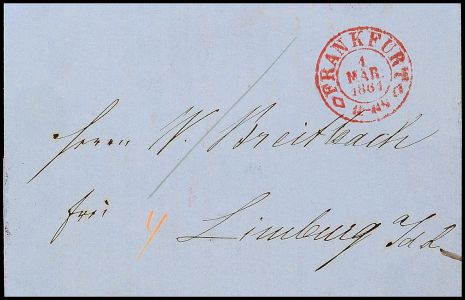 FRANKFURT
1
MÄR.
1861
Herrn W. Breitbach
frei
Limburg a/d L.